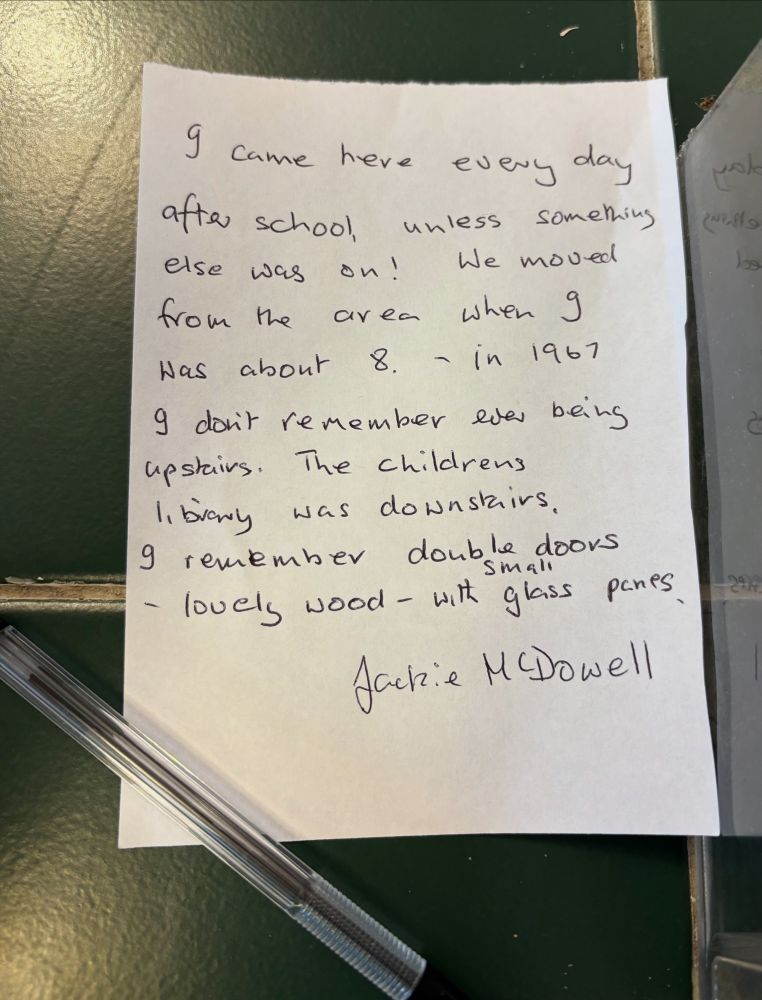 I came here every day
after school, unless something
else was on! We moved
from the area when I
was about 8. - in 1967
I don't remember ever being
upstairs. The childrens
library was downstairs.
I remember double doors
small
- lovely wood - with glass panes.
Jackie McDowell